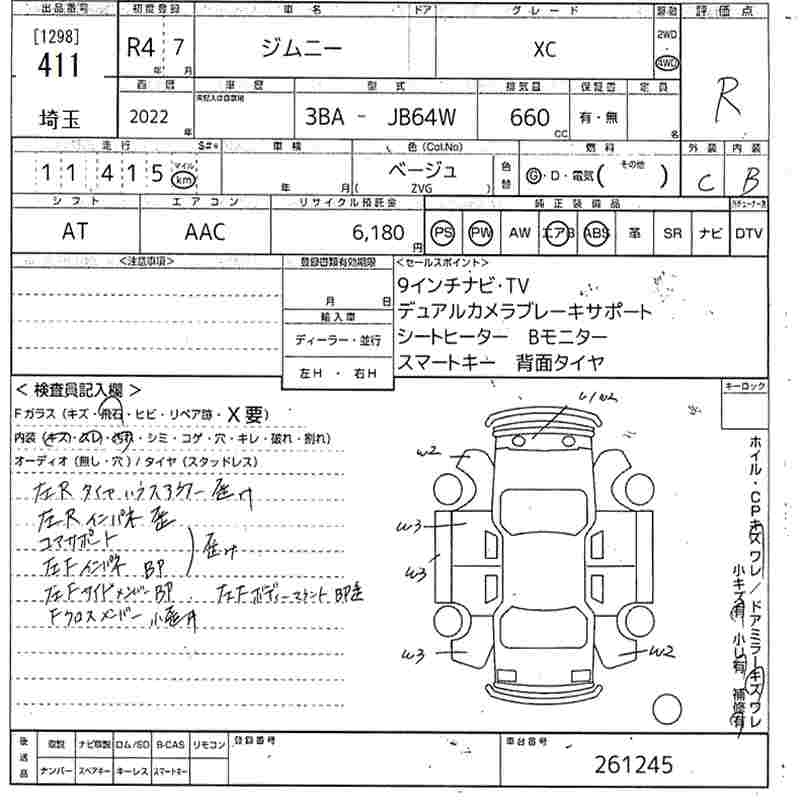 出品番号 初度登録 車名 ドア グレード 駆動 評価点
[1298]
411 R4 年 7 月 ジムニー XC 2WD ・ 4WD R
西暦 車歴 型式 排気量 保証書 定員
埼玉 2022 年 未記入は自家用 3BA - JB64W 660 CC 有・無 名
走行 S#* 車検 色 (Col.No) 燃料 外装 内装
11 415 マイル km 年 月 ベージュ ( ZVG ) 色替 G・D・電気 ( その他 ) C B
シフト エアコン リサイクル預託金 純正装備品
AT AAC 6,180 円 PS PW AW エアB ABS 革 SR ナビ DTV
<注意事項> 登録書類有効期限 <セールスポイント>
月 日 9インチナビ・TV
輸入車 デュアルカメラブレーキサポート
ディーラー・並行 シートヒーター Bモニター
左H ・ 右H スマートキー 背面タイヤ
< 検査員記入欄 > キーロック
Fガラス (キズ・飛石・ヒビ・リペア跡・X要)
内装 (キズ・スレ・汚れ・シミ・コゲ・穴・キレ・破れ・割れ)
オーディオ (無し・穴) / タイヤ (スタッドレス)
左R タイヤハウスアウター 歪け
左R インパネ 歪
コアサポート
左F インパネ BP 歪け
左F サイドメンバー BP 左F ボディーマウント BP歪
F クロスメンバー 小歪け
W2
W3
W3
W3 W2
ホイル・CPキズ ワレ / ドアミラーキズ ワレ
小キズ有 小U有 補修有
後送品 取説 ナビ取説 ロム/SD B-CAS リモコン 登録番号 車台番号
ナンバー スペアキー キーレス スマートキー 261245